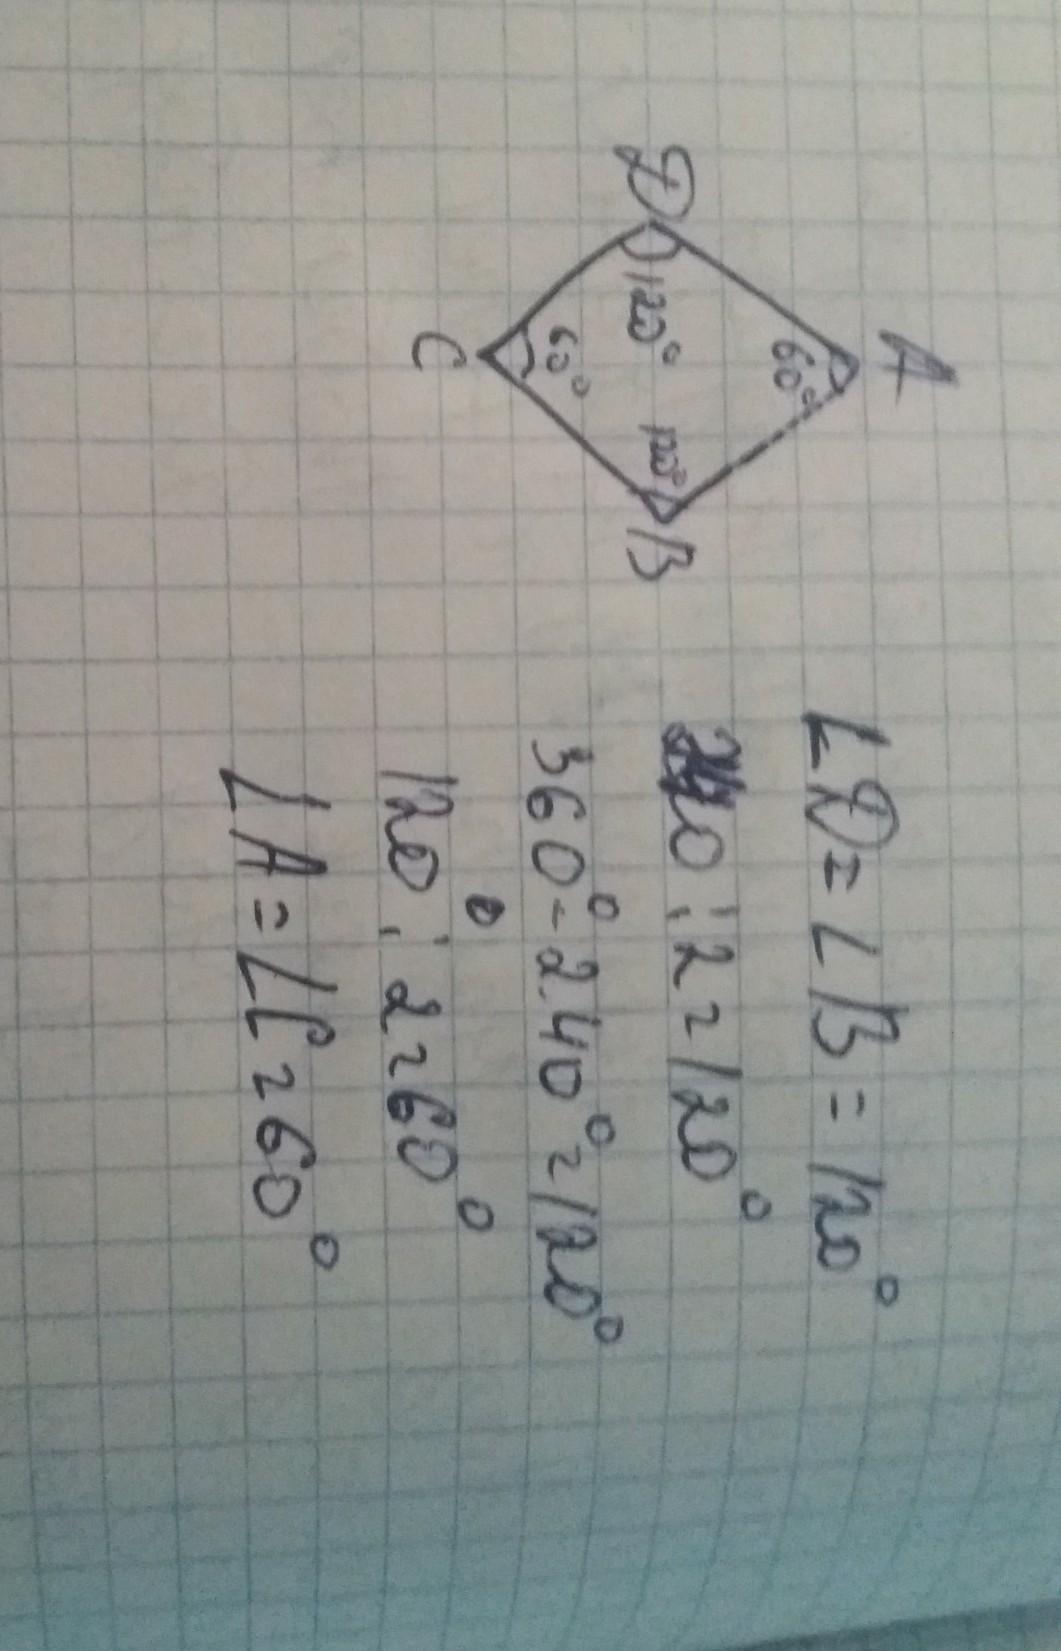 A
60°
D
120°
120°
B
60°
C
∠D = ∠B = 120°
240 : 2 = 120°
360° - 240° = 120°
120° : 2 = 60°
∠A = ∠C = 60°